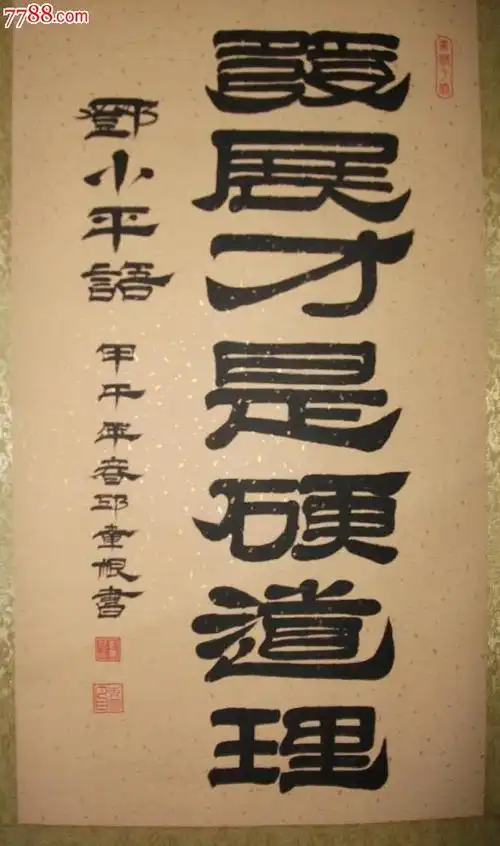 7788.com
發展才是硬道理
鄧小平語
甲午年春邱童根書